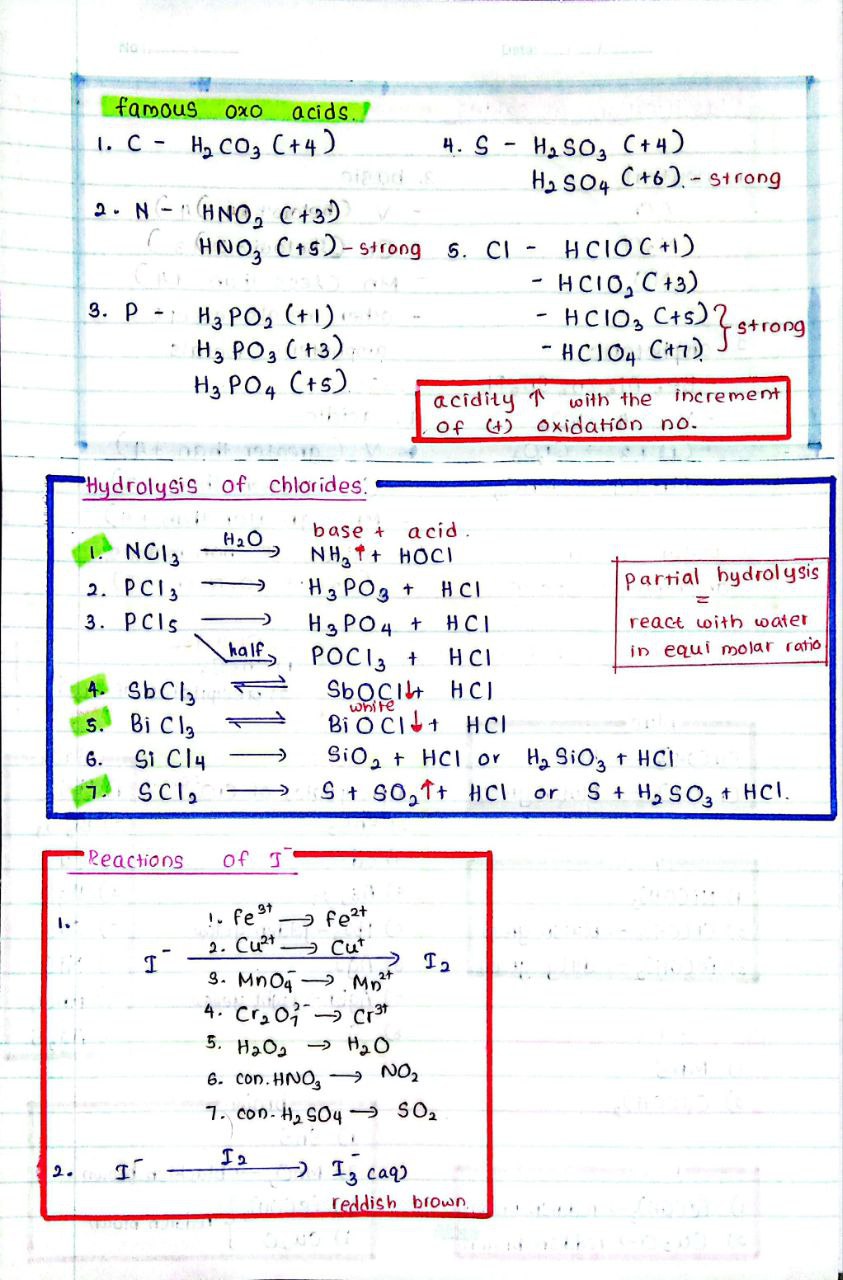 famous oxo acids.
1. C - H₂CO₃ (+4)
2. N - HNO₂ (+3)
HNO₃ (+5) - strong
3. P - H₃PO₂ (+1)
H₃PO₃ (+3)
H₃PO₄ (+5)
4. S - H₂SO₃ (+4)
H₂SO₄ (+6). - strong
5. Cl - HClO (+1)
- HClO₂ (+3)
- HClO₃ (+5) } strong
- HClO₄ (+7)
acidity ↑ with the increment
of (+) oxidation no.
Hydrolysis of chlorides.
base + acid.
1. NCl₃ —H₂O→ NH₃↑ + HOCl
2. PCl₃ → H₃PO₃ + HCl
3. PCl₅ → H₃PO₄ + HCl
half→ POCl₃ + HCl
4. SbCl₃ ⇌ SbOCl↓ + HCl
white
5. BiCl₃ ⇌ BiOCl↓ + HCl
6. SiCl₄ → SiO₂ + HCl or H₂SiO₃ + HCl
7. SCl₂ → S + SO₂↑ + HCl or S + H₂SO₃ + HCl.
partial hydrolysis
=
react with water
in equi molar ratio
Reactions of I⁻
1. I⁻ → I₂
1. Fe³⁺ → Fe²⁺
2. Cu²⁺ → Cu⁺
3. MnO₄⁻ → Mn²⁺
4. Cr₂O₇²⁻ → Cr³⁺
5. H₂O₂ → H₂O
6. con. HNO₃ → NO₂
7. con. H₂SO₄ → SO₂
2. I⁻ —I₂→ I₃⁻ (aq)
reddish brown